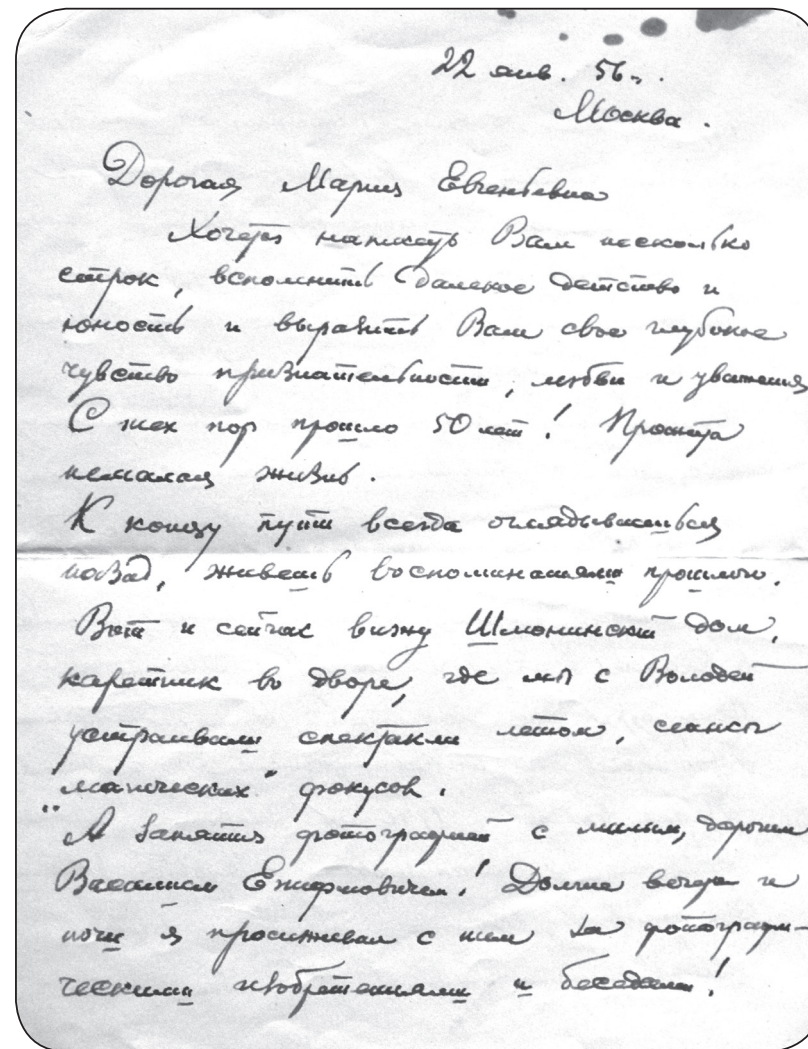 22 янв. 56 г.
Москва.
Дорогая Мария Евгеньевна
Хочется написать Вам несколько
строк, вспомнить далекое детство и
юность и выразить Вам свое глубокое
чувство признательности, любви и уважения
С тех пор прошло 50 лет! Прожита
немалая жизнь.
К концу пути всегда оглядываешься
назад, живешь воспоминаниями прошлого.
Вот и сейчас вижу Шмонинский дом,
каретник во дворе, где мы с Володей
устраивали спектакли летом, сеансы
"магических" фокусов.
А занятия фотографией с милым, дорогим
Василием Ефимовичем! Долгие вечера и
ночи я просиживал с ним за фотографи-
ческими изобретениями и беседами!